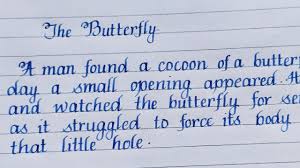 The Butterfly
A man found a cocoon of a butter
day a small opening appeared. H
and watched the butterfly for se
as it struggled to force its body
that little hole.